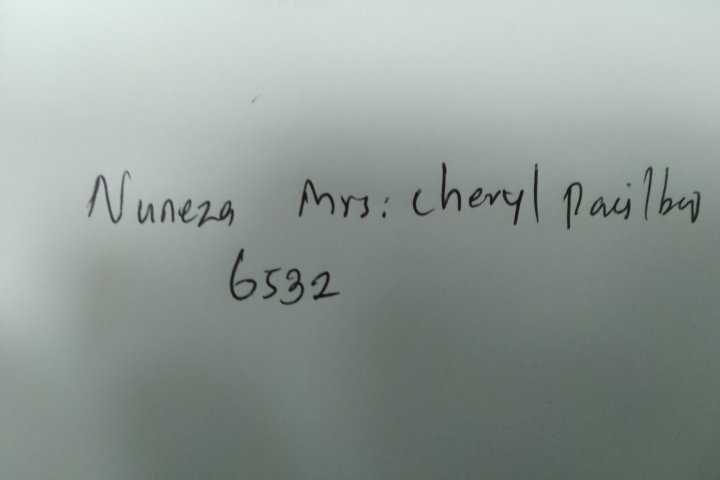 Nuneza Mrs: cheryl
6532